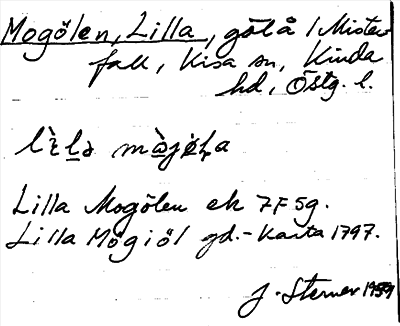 Mogölen, Lilla, göl å / Mister
fall, Kisa sn, Kinda
hd, Östg. l.
Lilla Mogölen ek 7F5g.
Lilla Mögiöl gd.-Karta 1797.
J. Sterner 1959